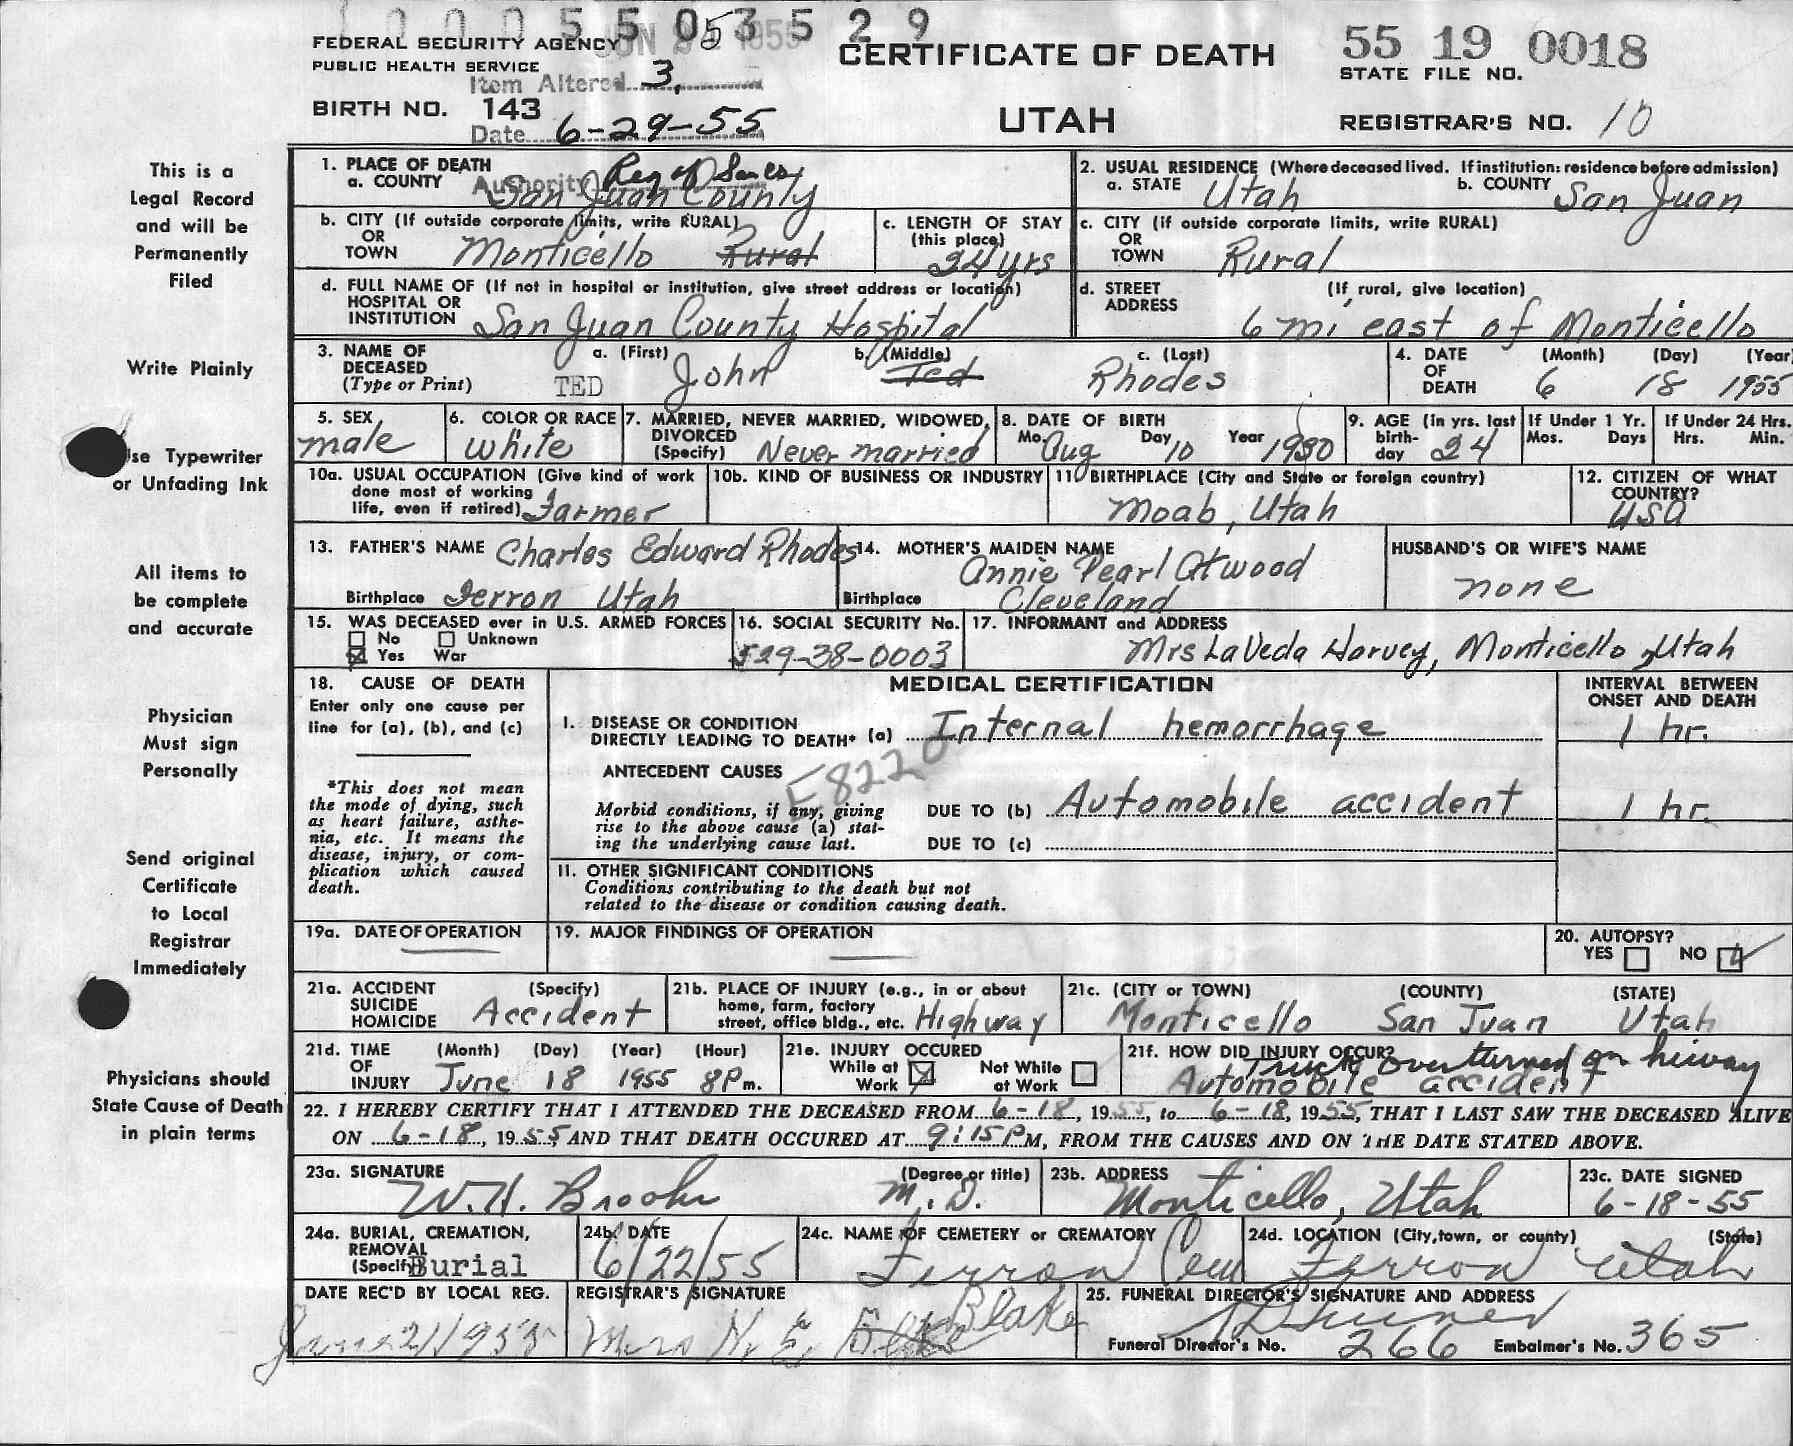 1 0 0 0 5 5 0 3 5 2 9
FEDERAL SECURITY AGENCY
PUBLIC HEALTH SERVICE
JUN 1955
CERTIFICATE OF DEATH
UTAH
55 19 0018
STATE FILE NO.
Item Altered 3,
BIRTH NO. 143
Date 6-29-55
REGISTRAR'S NO. 10
Authority Reg of
This is a
Legal Record
and will be
Permanently
Filed
Write Plainly
Use Typewriter
or Unfading Ink
All items to
be complete
and accurate
Physician
Must sign
Personally
Send original
Certificate
to Local
Registrar
Immediately
Physicians should
State Cause of Death
in plain terms
1. PLACE OF DEATH
a. COUNTY San Juan County
2. USUAL RESIDENCE (Where deceased lived. If institution: residence before admission)
a. STATE Utah b. COUNTY San Juan
b. CITY (If outside corporate limits, write RURAL)
OR
TOWN Monticello Rural
c. LENGTH OF STAY
(this place)
24 yrs
c. CITY (if outside corporate limits, write RURAL)
OR
TOWN Rural
d. FULL NAME OF (If not in hospital or institution, give street address or location)
HOSPITAL OR
INSTITUTION San Juan County Hospital
d. STREET (If rural, give location)
ADDRESS
6 mi east of Monticello
3. NAME OF DECEASED
(Type or Print)
a. (First) b. (Middle) c. (Last)
TED John Ted Rhodes
4. DATE OF DEATH (Month) (Day) (Year
6 18 1955
5. SEX
male
6. COLOR OR RACE
White
7. MARRIED, NEVER MARRIED, WIDOWED,
DIVORCED
(Specify) Never married
8. DATE OF BIRTH
Mo. Aug Day 10 Year 1930
9. AGE (in yrs. last
birth-
day 24
If Under 1 Yr.
Mos. Days
If Under 24 Hrs.
Hrs. Min.
10a. USUAL OCCUPATION (Give kind of work
done most of working
life, even if retired) Farmer
10b. KIND OF BUSINESS OR INDUSTRY
11 BIRTHPLACE (City and State or foreign country)
Moab, Utah
12. CITIZEN OF WHAT
COUNTRY?
USA
13. FATHER'S NAME Charles Edward Rhodes
Birthplace Ferron Utah
14. MOTHER'S MAIDEN NAME
Annie Pearl Atwood
Birthplace Cleveland
HUSBAND'S OR WIFE'S NAME
none
15. WAS DECEASED ever in U.S. ARMED FORCES
No Unknown
Yes War
16. SOCIAL SECURITY No.
529-38-0003
17. INFORMANT and ADDRESS
Mrs LaVeda Harvey, Monticello, Utah
18. CAUSE OF DEATH
Enter only one cause per
line for (a), (b), and (c)
*This does not mean
the mode of dying, such
as heart failure, asthe-
nia, etc. It means the
disease, injury, or com-
plication which caused
death.
MEDICAL CERTIFICATION
INTERVAL BETWEEN
ONSET AND DEATH
I. DISEASE OR CONDITION
DIRECTLY LEADING TO DEATH* (a) Internal hemorrhage 1 hr.
E8220
ANTECEDENT CAUSES
Morbid conditions, if any, giving
rise to the above cause (a) stat-
ing the underlying cause last.
DUE TO (b) Automobile accident 1 hr.
DUE TO (c)
11. OTHER SIGNIFICANT CONDITIONS
Conditions contributing to the death but not
related to the disease or condition causing death.
19a. DATE OF OPERATION
19. MAJOR FINDINGS OF OPERATION
20. AUTOPSY?
YES NO
21a. ACCIDENT (Specify)
SUICIDE
HOMICIDE Accident
21b. PLACE OF INJURY (e.g., in or about
home, farm, factory
street, office bldg., etc. Highway
21c. (CITY or TOWN) (COUNTY) (STATE)
Monticello San Juan Utah
21d. TIME (Month) (Day) (Year) (Hour)
OF
INJURY June 18 1955 8Pm.
21e. INJURY OCCURED
While at Work Not While at Work
21f. HOW DID INJURY OCCUR?
Truck overturned on hiway
Automobile accident
22. I HEREBY CERTIFY THAT I ATTENDED THE DECEASED FROM 6-18, 1955, to 6-18, 1955, THAT I LAST SAW THE DECEASED ALIVE
ON 6-18, 1955 AND THAT DEATH OCCURED AT 9:15 PM, FROM THE CAUSES AND ON THE DATE STATED ABOVE.
23a. SIGNATURE (Degree or title)
W.H. Brooks M.D.
23b. ADDRESS
Monticello, Utah
23c. DATE SIGNED
6-18-55
24a. BURIAL, CREMATION,
REMOVAL
(Specify) Burial
24b. DATE
6/22/55
24c. NAME OF CEMETERY OR CREMATORY
Ferron Cem
24d. LOCATION (City, town, or county) (State)
Ferron Utah
DATE REC'D BY LOCAL REG.
June 21 1955
REGISTRAR'S SIGNATURE
Mrs H. E. Blake
25. FUNERAL DIRECTOR'S SIGNATURE AND ADDRESS
Funeral Director's No. 266 Embalmer's No. 365